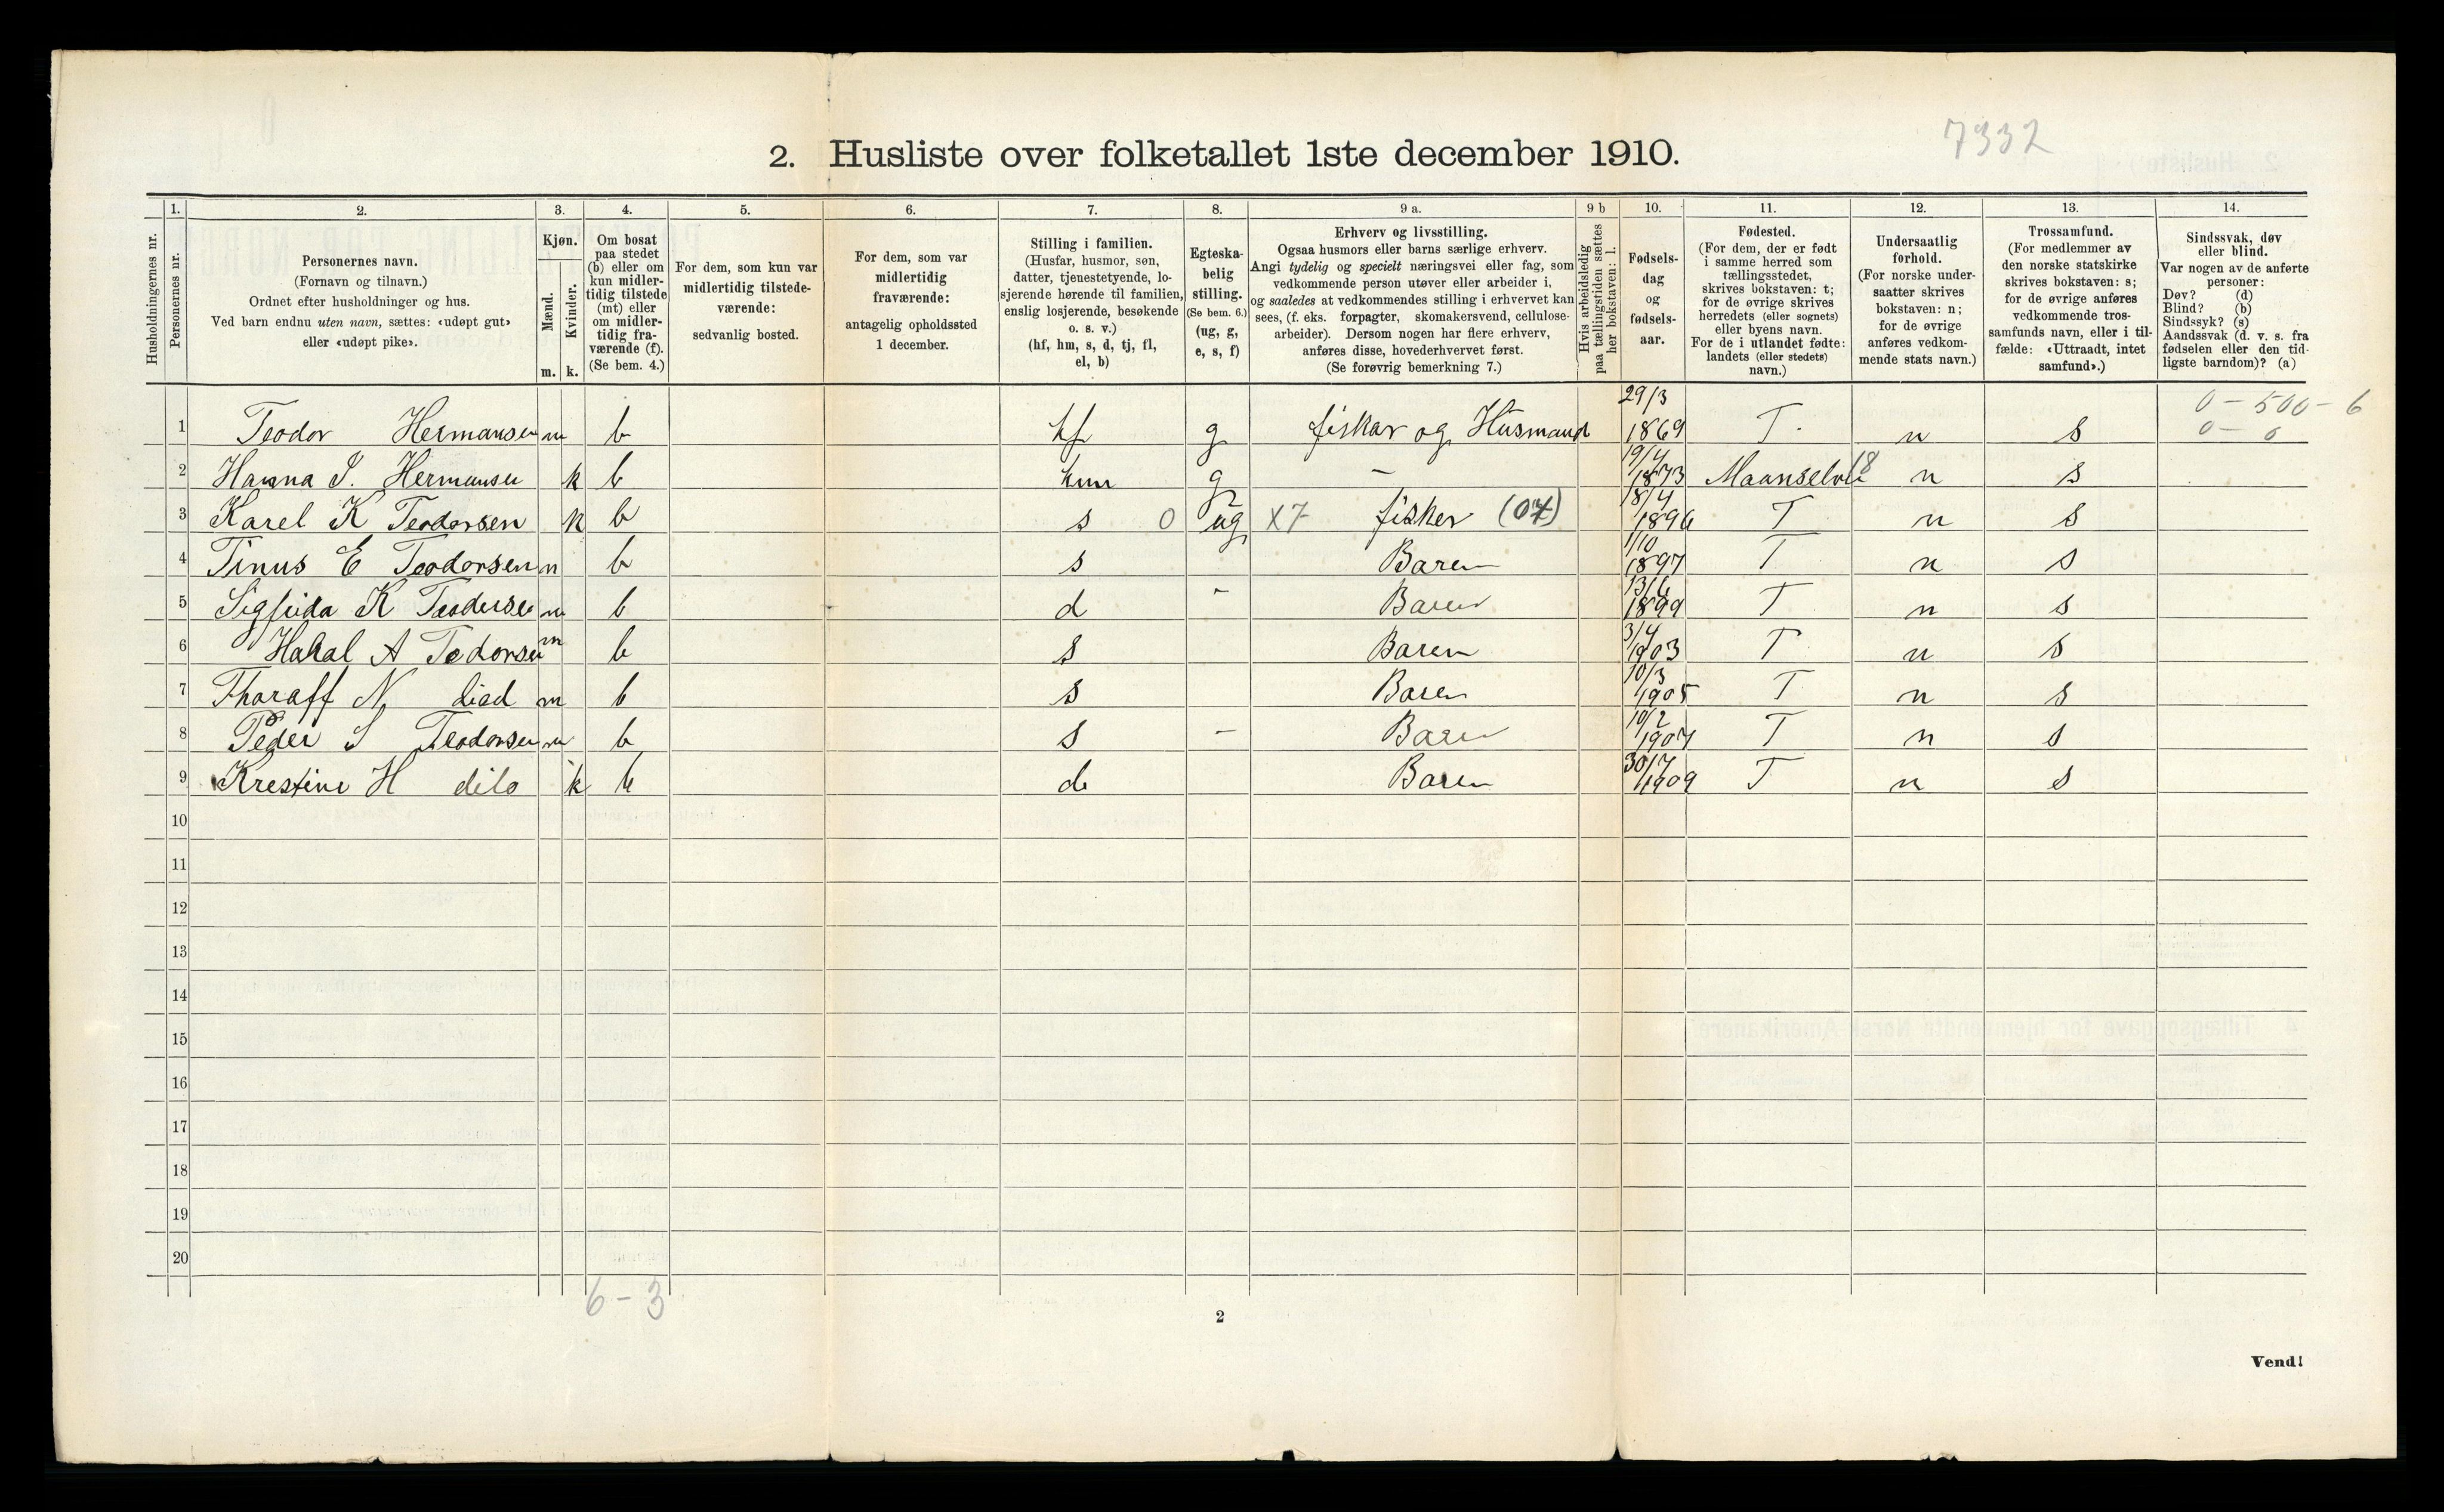 7332
2. Husliste over folketallet 1ste december 1910.
1. 2. 3. 4. 5. 6. 7. 8. 9 a. 9 b 10. 11. 12. 13. 14.
Husholdningernes nr.
Personernes nr.
Personernes navn.
(Fornavn og tilnavn.)
Ordnet efter husholdninger og hus.
Ved barn endnu uten navn, sættes: «udøpt gut»
eller «udøpt pike».
Kjøn.
Mænd.
Kvinder.
m. k.
Om bosat
paa stedet
(b) eller om
kun midler-
tidig tilstede
(mt) eller
om midler-
tidig fra-
værende (f).
(Se bem. 4.)
For dem, som kun var
midlertidig tilstede-
værende:
sedvanlig bosted.
For dem, som var
midlertidig
fraværende:
antagelig opholdssted
1 december.
Stilling i familien.
(Husfar, husmor, søn,
datter, tjenestetyende, lo-
sjerende hørende til familien,
enslig losjerende, besøkende
o. s. v.)
(hf, hm, s, d, tj, fl,
el, b)
Egteska-
belig
stilling.
(Se bem. 6.)
(ug, g,
e, s, f)
Erhverv og livsstilling.
Ogsaa husmors eller barns særlige erhverv.
Angi tydelig og specielt næringsvei eller fag, som
vedkommende person utøver eller arbeider i,
og saaledes at vedkommendes stilling i erhvervet kan
sees, (f. eks. forpagter, skomakersvend, cellulose-
arbeider). Dersom nogen har flere erhverv,
anføres disse, hovederhvervet først.
(Se forøvrig bemerkning 7.)
Hvis arbeidsledig
paa tællingstiden sættes
her bokstaven: l.
Fødsels-
dag
og
fødsels-
aar.
Fødested.
(For dem, der er født
i samme herred som
tællingsstedet,
skrives bokstaven: t;
for de øvrige skrives
herredets (eller sognets)
eller byens navn.
For de i utlandet fødte:
landets (eller stedets)
navn.)
Undersaatlig
forhold.
(For norske under-
saatter skrives
bokstaven: n;
for de øvrige
anføres vedkom-
mende stats navn.)
Trossamfund.
(For medlemmer av
den norske statskirke
skrives bokstaven: s;
for de øvrige anføres
vedkommende tros-
samfunds navn, eller i til-
fælde: «Uttraadt, intet
samfund».)
Sindssvak, døv
eller blind.
Var nogen av de anførte
personer:
Døv? (d)
Blind? (b)
Sindssyk? (s)
Aandssvak (d. v. s. fra
fødselen eller den tid-
ligste barndom)? (a)
0 - 500 - 6
0 - 0
1 Teodor Hermansen m b hf g fiskar og Husmand 29/3 1869 T. n s
2 Hanna S. Hermansen k b hm g - 19/4 1873 Maanselv 18 n s
3 Karel K Teodorsen k b s 0 ug X7 fisker (07) 18/4 1896 T n s
4 Tinus E Teodorsen m b s Baren 1/10 1897 T n s
5 Sigfrida K Teodersen m b d - Baren 13/6 1899 T n s
6 Hakal A Tedorsen m b s Baren 3/4 1903 T n s
7 Tharaff N diad m b s Baren 10/3 1905 T n s
8 Peder S Teodorsen m b s - Baren 10/2 1907 T n s
9 Krestine H dito k b d Baren 30/7 1909 T n s
10
11
12
13
14
15
16
17
18
19
20
6 - 3
2
Vend!